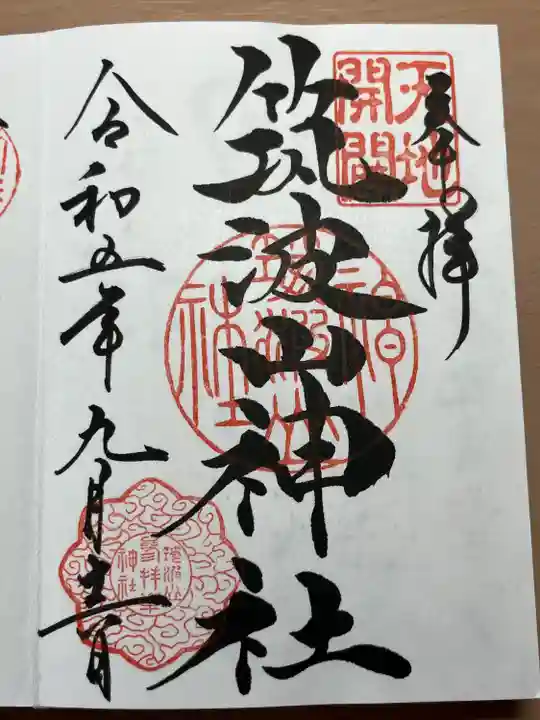 奉拝
天地
開闢
筑波山神社
筑波山神社
令和五年九月
筑波山
参拝
神社